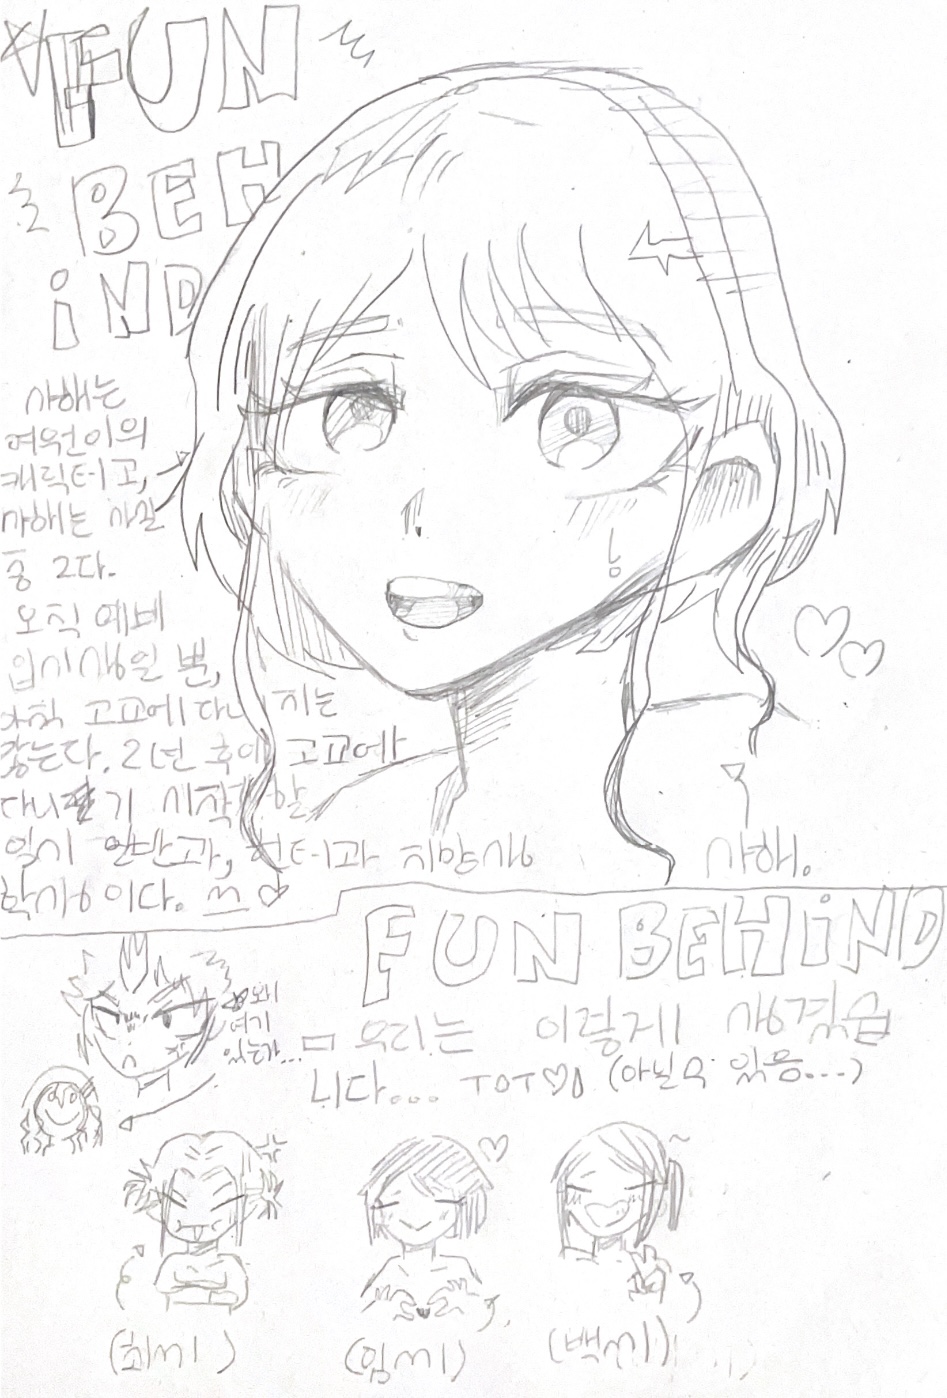 FUN
BEH
IND
사해는
여원이의
캐릭터고,
사해는 사실
중 2다.
오직 예비
입시생일 뿐,
아직 고교에 다니지는
않는다. 2년 후에 고교에
다니기 시작할
일시 일반과, 헌터과 지망생
학생이다.
사해.
FUN BEHIND
여기
있는가...
우리는 이렇게 생겼습
니다... TOT (아닐수 있음...)
(최씨)
(임씨)
(백씨)